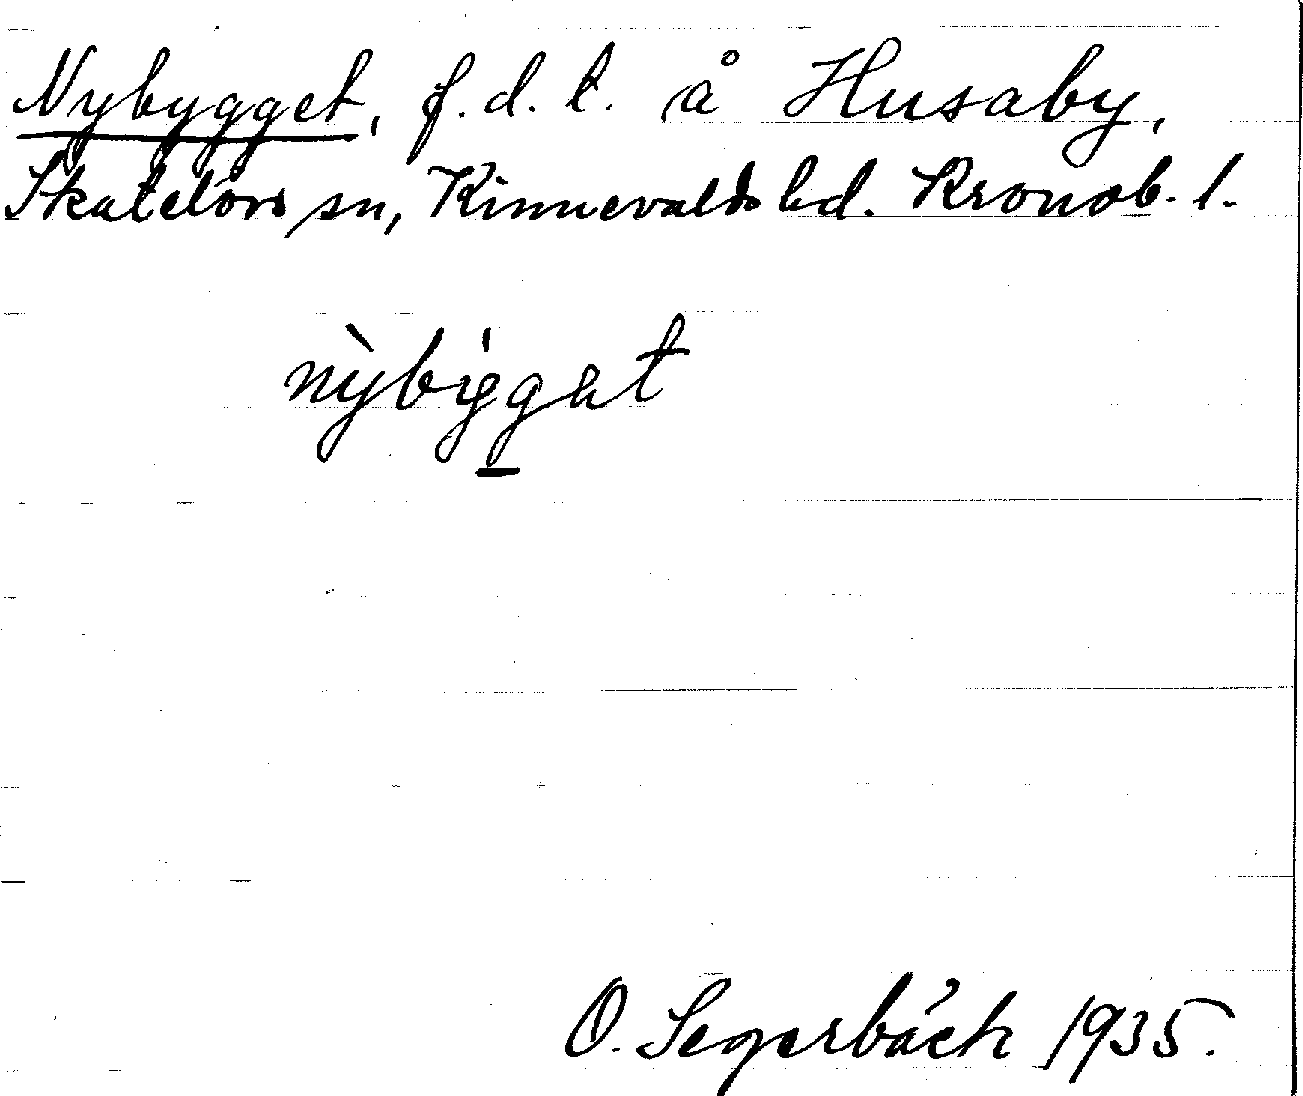 Nybygget, f.d. t. å Husaby,
Skatelövs sn, Kinnevalds hd. Kronob. l.
nỳbýggat
O. Segerbäck 1935.